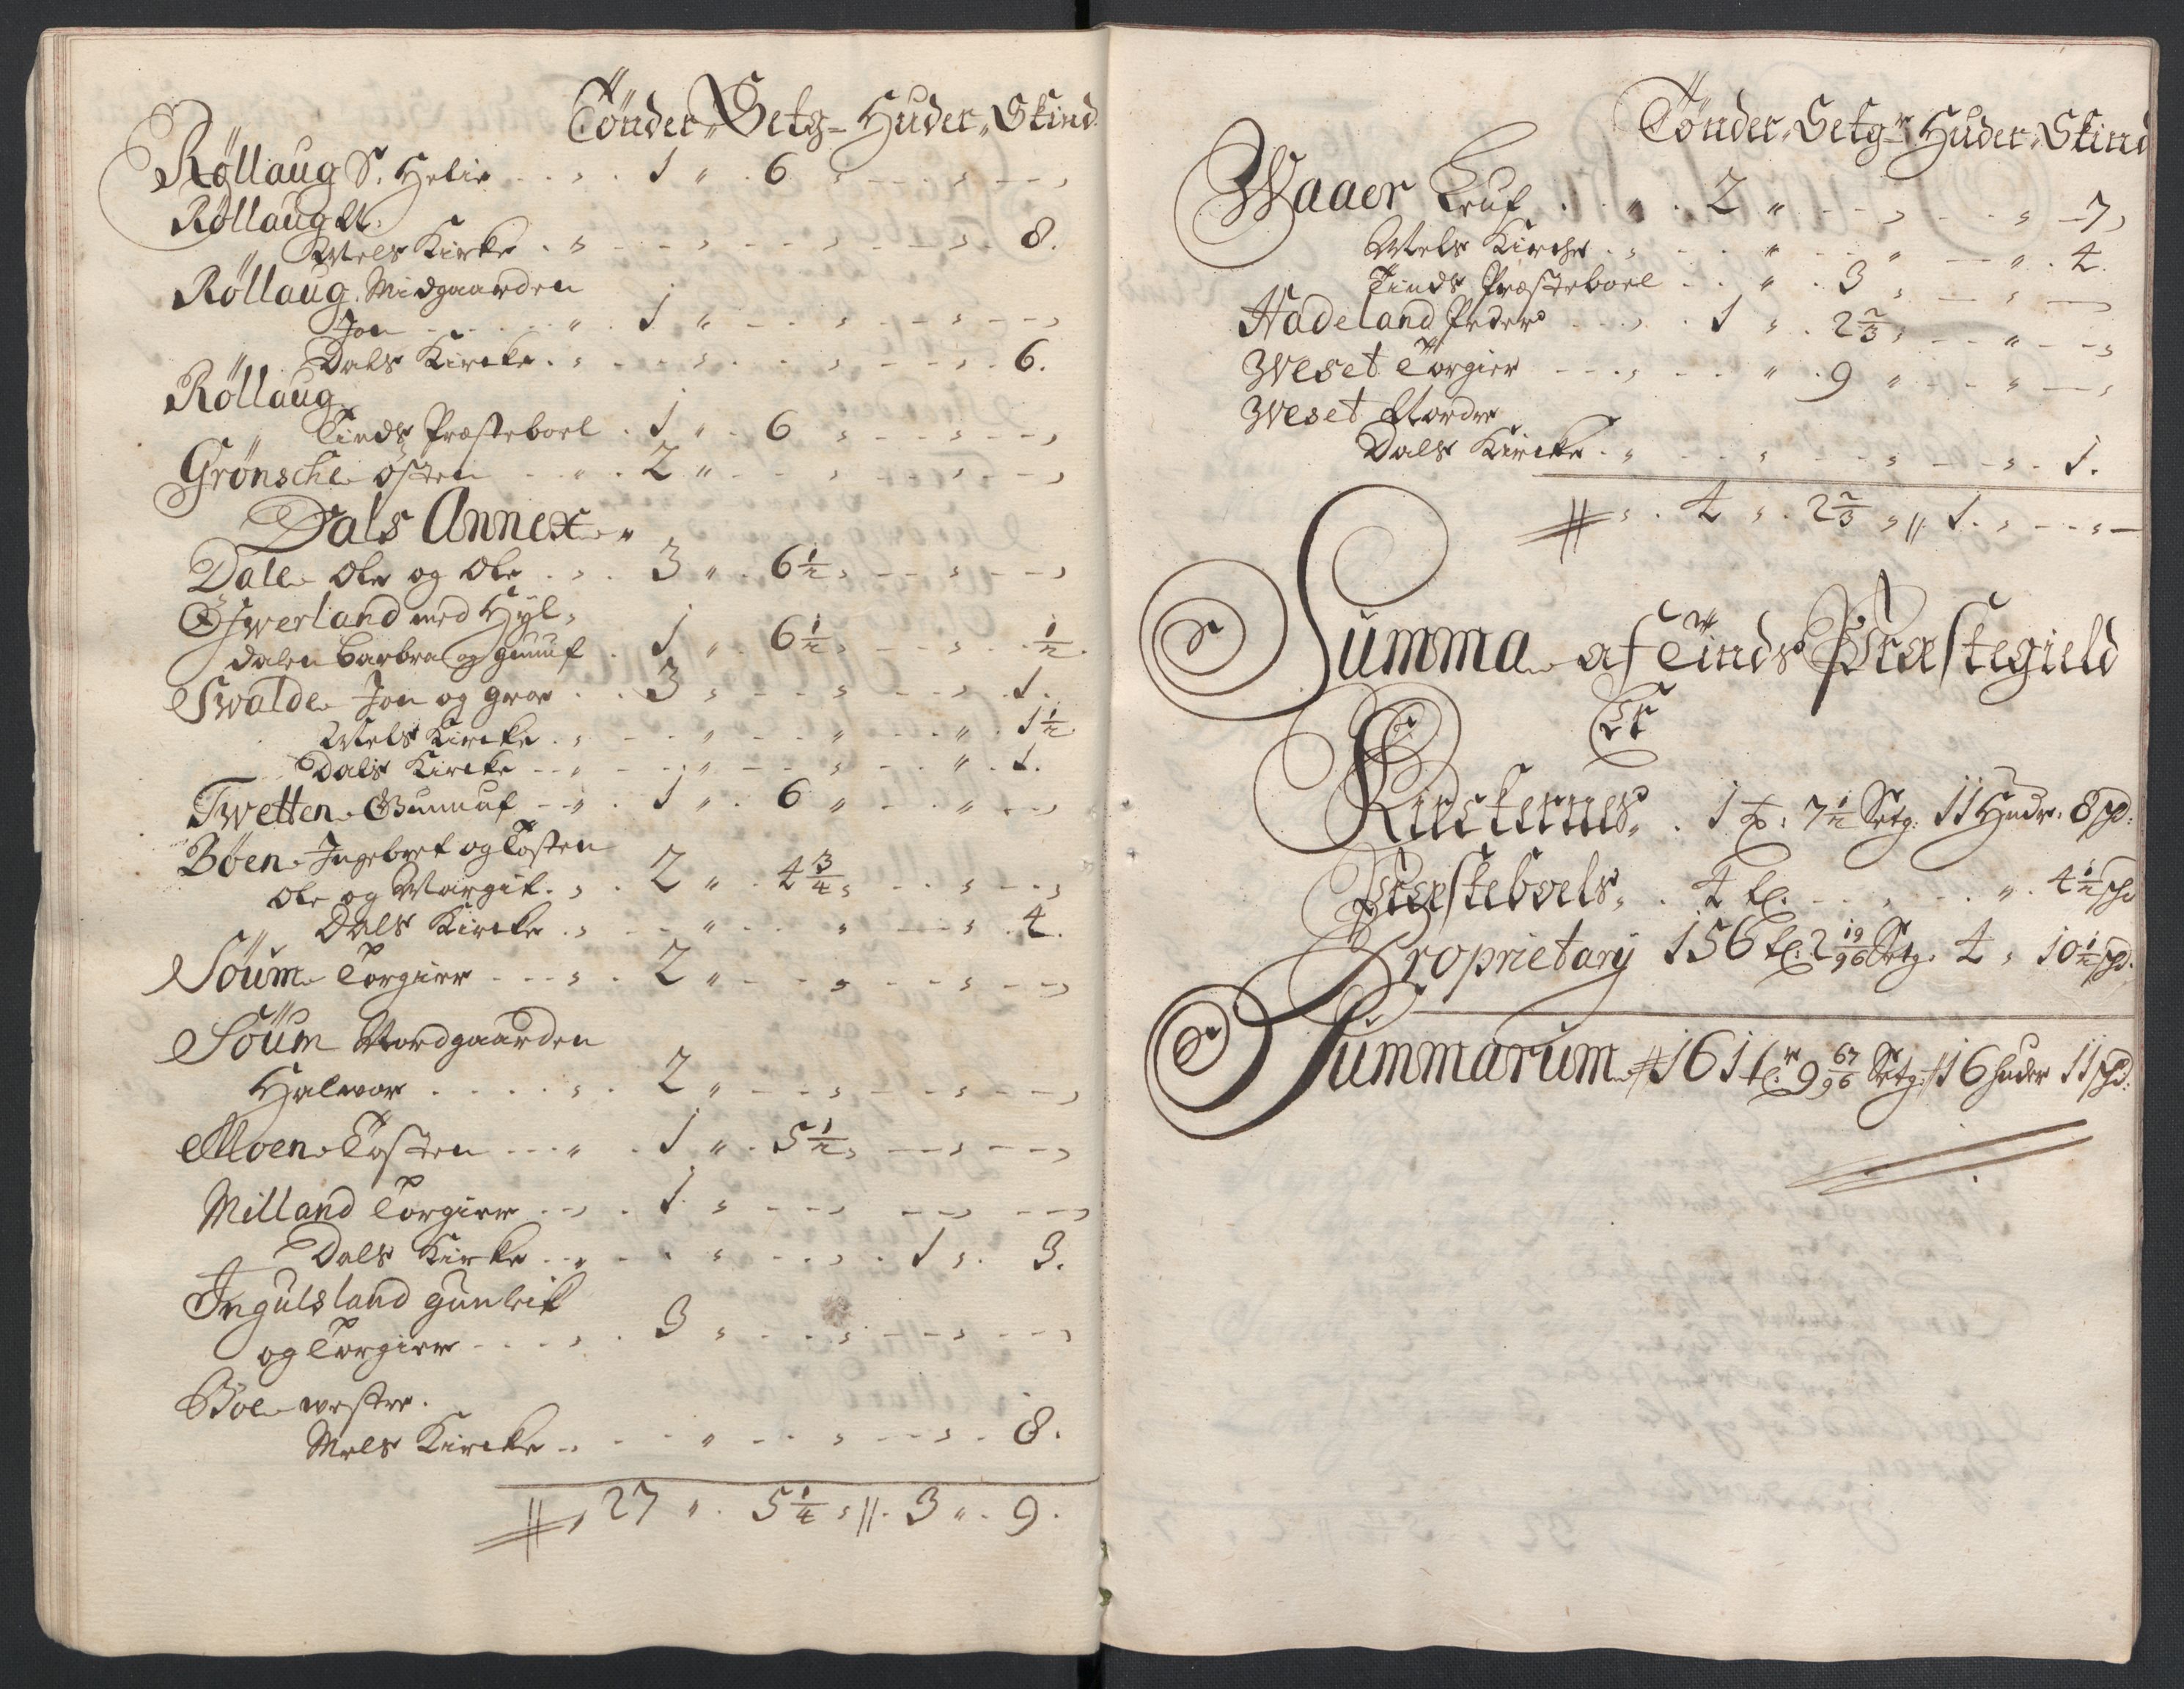 Tönder, Setg- Huder, Skind.
Röllaug S. Helie . . . 1 " 6 , - - , - -
Röllaug N.
Mels Kirke . , - - , - - , - - , . 8.
Röllaug. Midgaarden
Jon . . . . " . 1 " - - , - - , - -
Dals Kircke . , - - , - - , - - , . 6.
Röllaug
Tinds Præsteboel . 1 " . 6 , - - , - -
Grönsche östen . . 2 " - - , - - , - -
Dals Annex
Dale Ole og Ole . , . 3 " . 6 1/2 , - - , - -
Ofwerland med Hyl,
dalen Barbra og gunuf . 1 " . 6 1/2 , - - , . 1/2.
Swalde Jon og groe . . 3 , - - , - - , . 1.
Mels Kircke . , - - " - - " - - " . 1 1/2
Dals Kircke - - , - - " - - , - - " . 1.
Twetten Gunnuf - - " . 1 " . 6 " - - " - -
Böen Ingebret og Tosten
Ole og Margit . , . 2 " . 4 3/4 , - - , - -
Dals Kircke . , - - " - - " - - , . 4.
Söum Torgier - - - , . 2 " - - , - - , - -
Söum Nordgaarden
Halvor . . . . , . 2 " - - , - - , - -
Moen Tosten - - - " . 1 " . 5 1/2 , - - , - -
Milland Torgier - - , . 1 , - - , - - , - -
Dals Kirke . . " - - , - - , . 1 , . 3.
Ingulsland gunleik
og Torgier - - - , . 3 , - - , - - , - -
Böe westre.
Mels Kircke - , - - " - - , - - , . 8.
27 " . 5 1/4 , 3 " . 9.
Tönder, Setgr Huder, Skind
Waaer Leuf . . " . 2 " - - , - - , - 7,
Mels Kirche . , - - " - - " - - " . 4.
Tinds Præsteboel . . " . 3 , - - , - -
Hadeland Peder . . , . 1 , . 2 2/3 , - - " - -
Weset Torgier - - - , - - " . 9 " - - " - -
Weset Nordre
Dals Kircke . , - - , - - , - - , . 1.
, . 4 , . 2 2/3 , 1 . , - - , -
Summa af Tinds Præstegield
Er
Kirckernes . 1 t. 7 1/2 Setg. 11 Hudr. 8 sd.
Præsteboels . . 4 t. - - , - - " . 4 1/2 sd
Proprietary 156 t. 2 19/96 Setg. 4 , 10 1/2 sd.
Summarum 161 tr 9 67/96 Setg. 16 huder 11 sd.